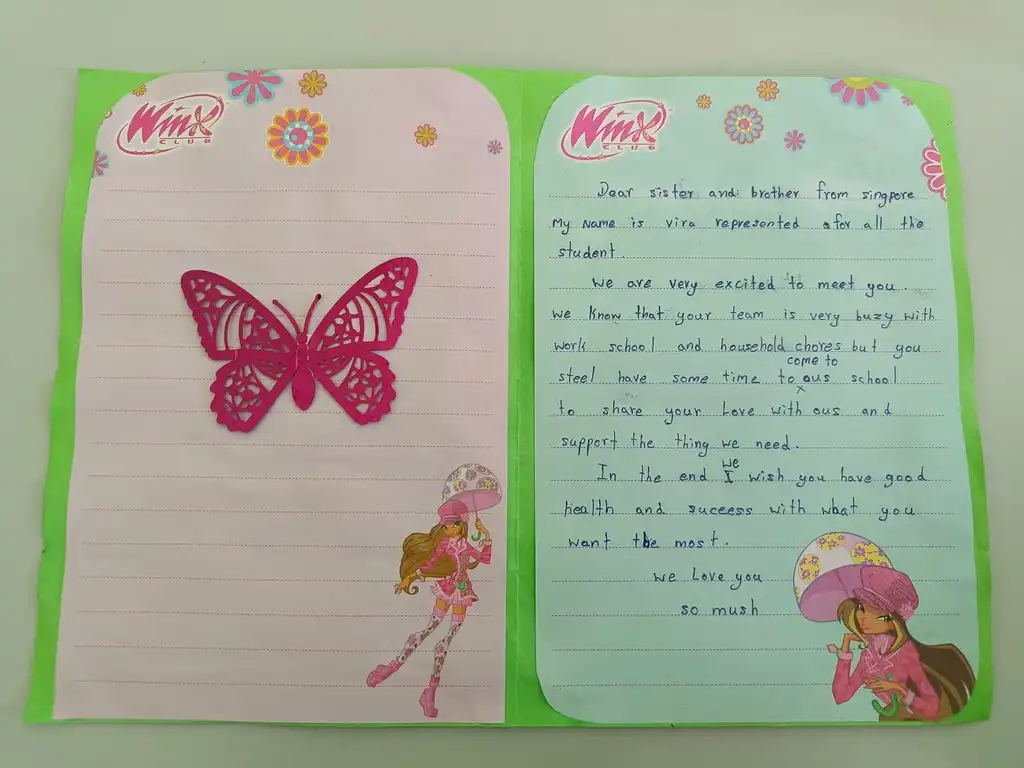 Winx
CLUB
Winx
CLUB
Dear sister and brother from singpore
My name is vira represented for all the
student.
We are very excited to meet you.
we know that your team is very buzy with
work school and household chores but you
come to
steel have some time to ous school
x
to share your Love with ous and
support the thing we need.
we
In the end I wish you have good
health and success with what you
want the most.
we Love you
so mush